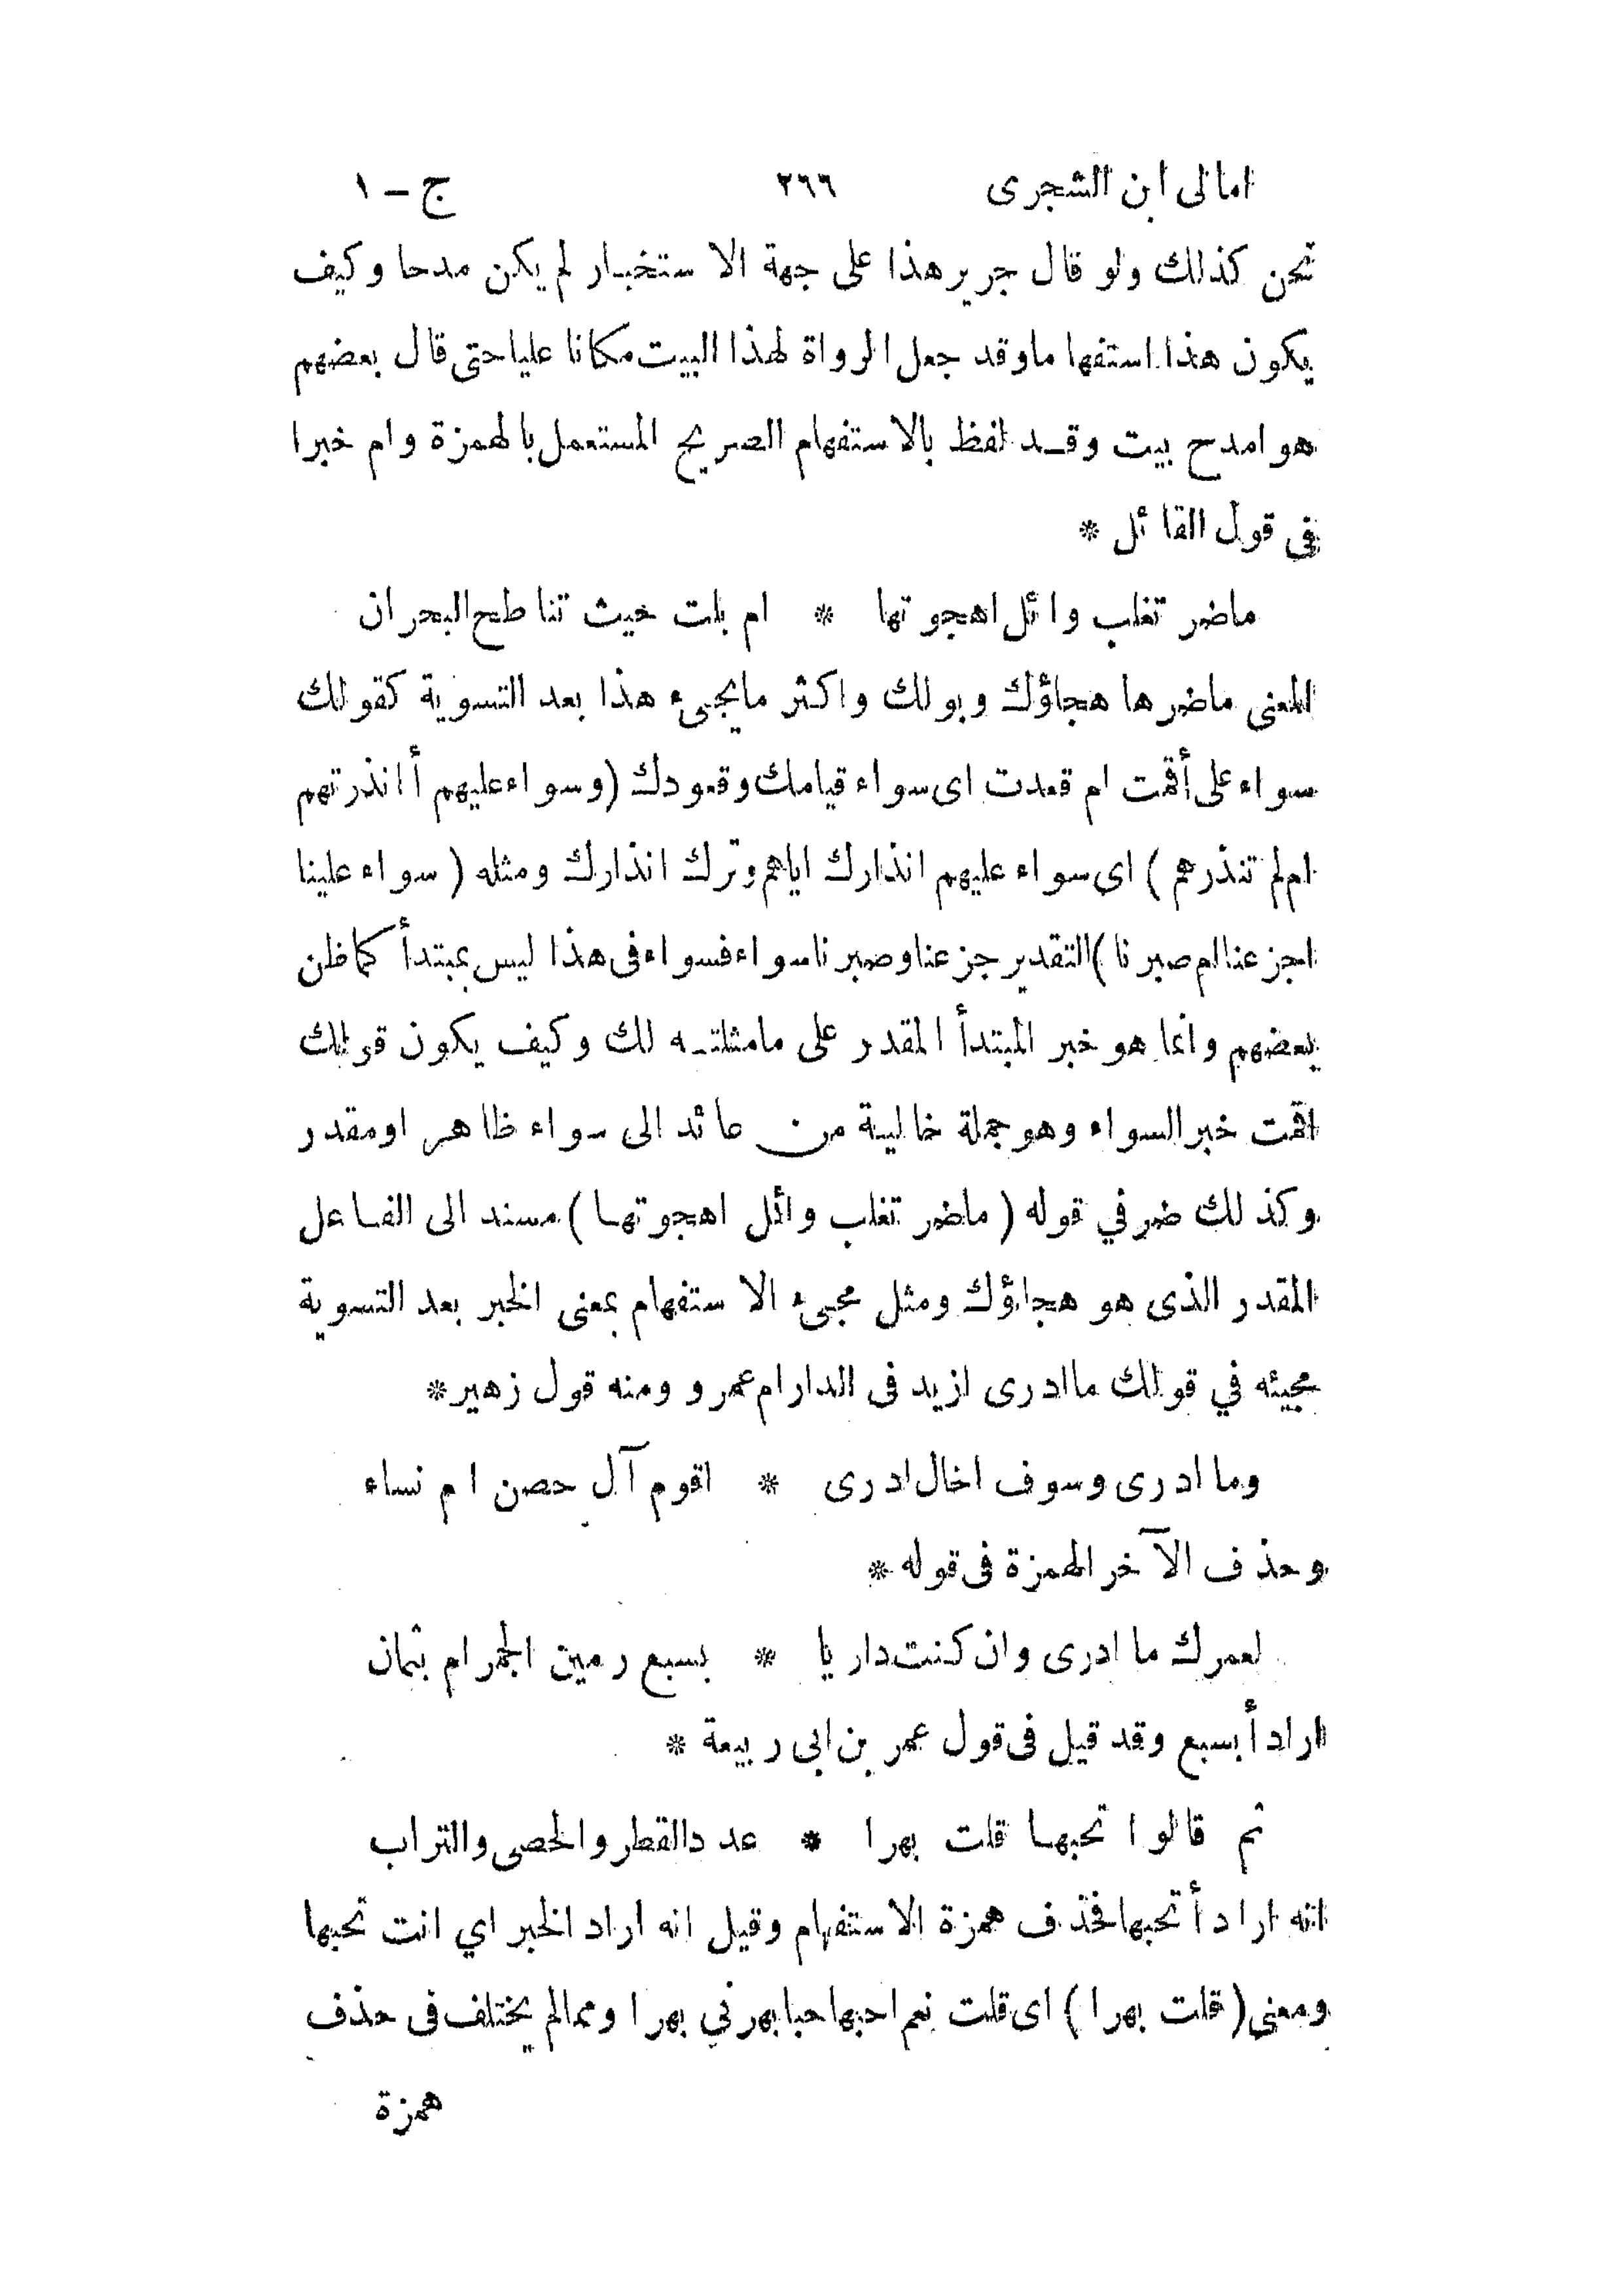 امالى ابن الشجرى ٢٦٦ ج – ١
نحن كذلك ولو قال جرير هذا على جهة الاستخبار لم يكن مدحا وكيف
يكون هذا استفهاما وقد جعل الرواة لهذا البيت مكانا عليا حتى قال بعضهم
هو امدح بيت وقد لفظ بالاستفهام الصريح المستعمل بالهمزة وام خبرا
فى قول القائل *
ماضر تغلب وائل اهجوتها * ام بلت حيث تناطح البحران
المعنى ماضرها هجاؤك وبولك واكثر مايجىء هذا بعد التسوية كقولك
سواء على أقمت ام قعدت اى سواء قيامك وقعودك (وسواء عليهم أانذرتهم
ام لم تنذرهم) اى سواء عليهم انذارك اياهم وترك انذارك ومثله (سواء علينا
اجزعنا ام صبرنا) التقدير جزعنا وصبرنا سواء فسواء فى هذا ليس بمبتدأ كما ظن
بعضهم وانما هو خبر المبتدأ المقدر على مامثلته لك وكيف يكون قولك
اقمت خبر السواء وهو جملة خالية من عائد الى سواء ظاهر اومقدر
وكذلك ضر في قوله (ماضر تغلب وائل اهجوتها) مسند الى الفاعل
المقدر الذى هو هجاؤك ومثل مجىء الاستفهام بمعنى الخبر بعد التسوية
مجيئه في قولك ماادرى ازيد فى الدار ام عمرو ومنه قول زهير *
وما ادرى وسوف اخال ادرى * اقوم آل حصن ام نساء
وحذف الآخر الهمزة فى قوله *
لعمرك ما ادرى وان كنت داريا * بسبع رمين الجمر ام بثمان
اراد أبسبع وقد قيل فى قول عمر بن ابى ربيعة *
ثم قالوا تحبها قلت بهرا * عدد القطر والحصى والتراب
انه اراد أتحبها فحذف همزة الاستفهام وقيل انه اراد الخبر اي انت تحبها
ومعنى (قلت بهرا) اى قلت نعم احبها حبا بهرني بهرا ومما لم يختلف فى حذف
همزة